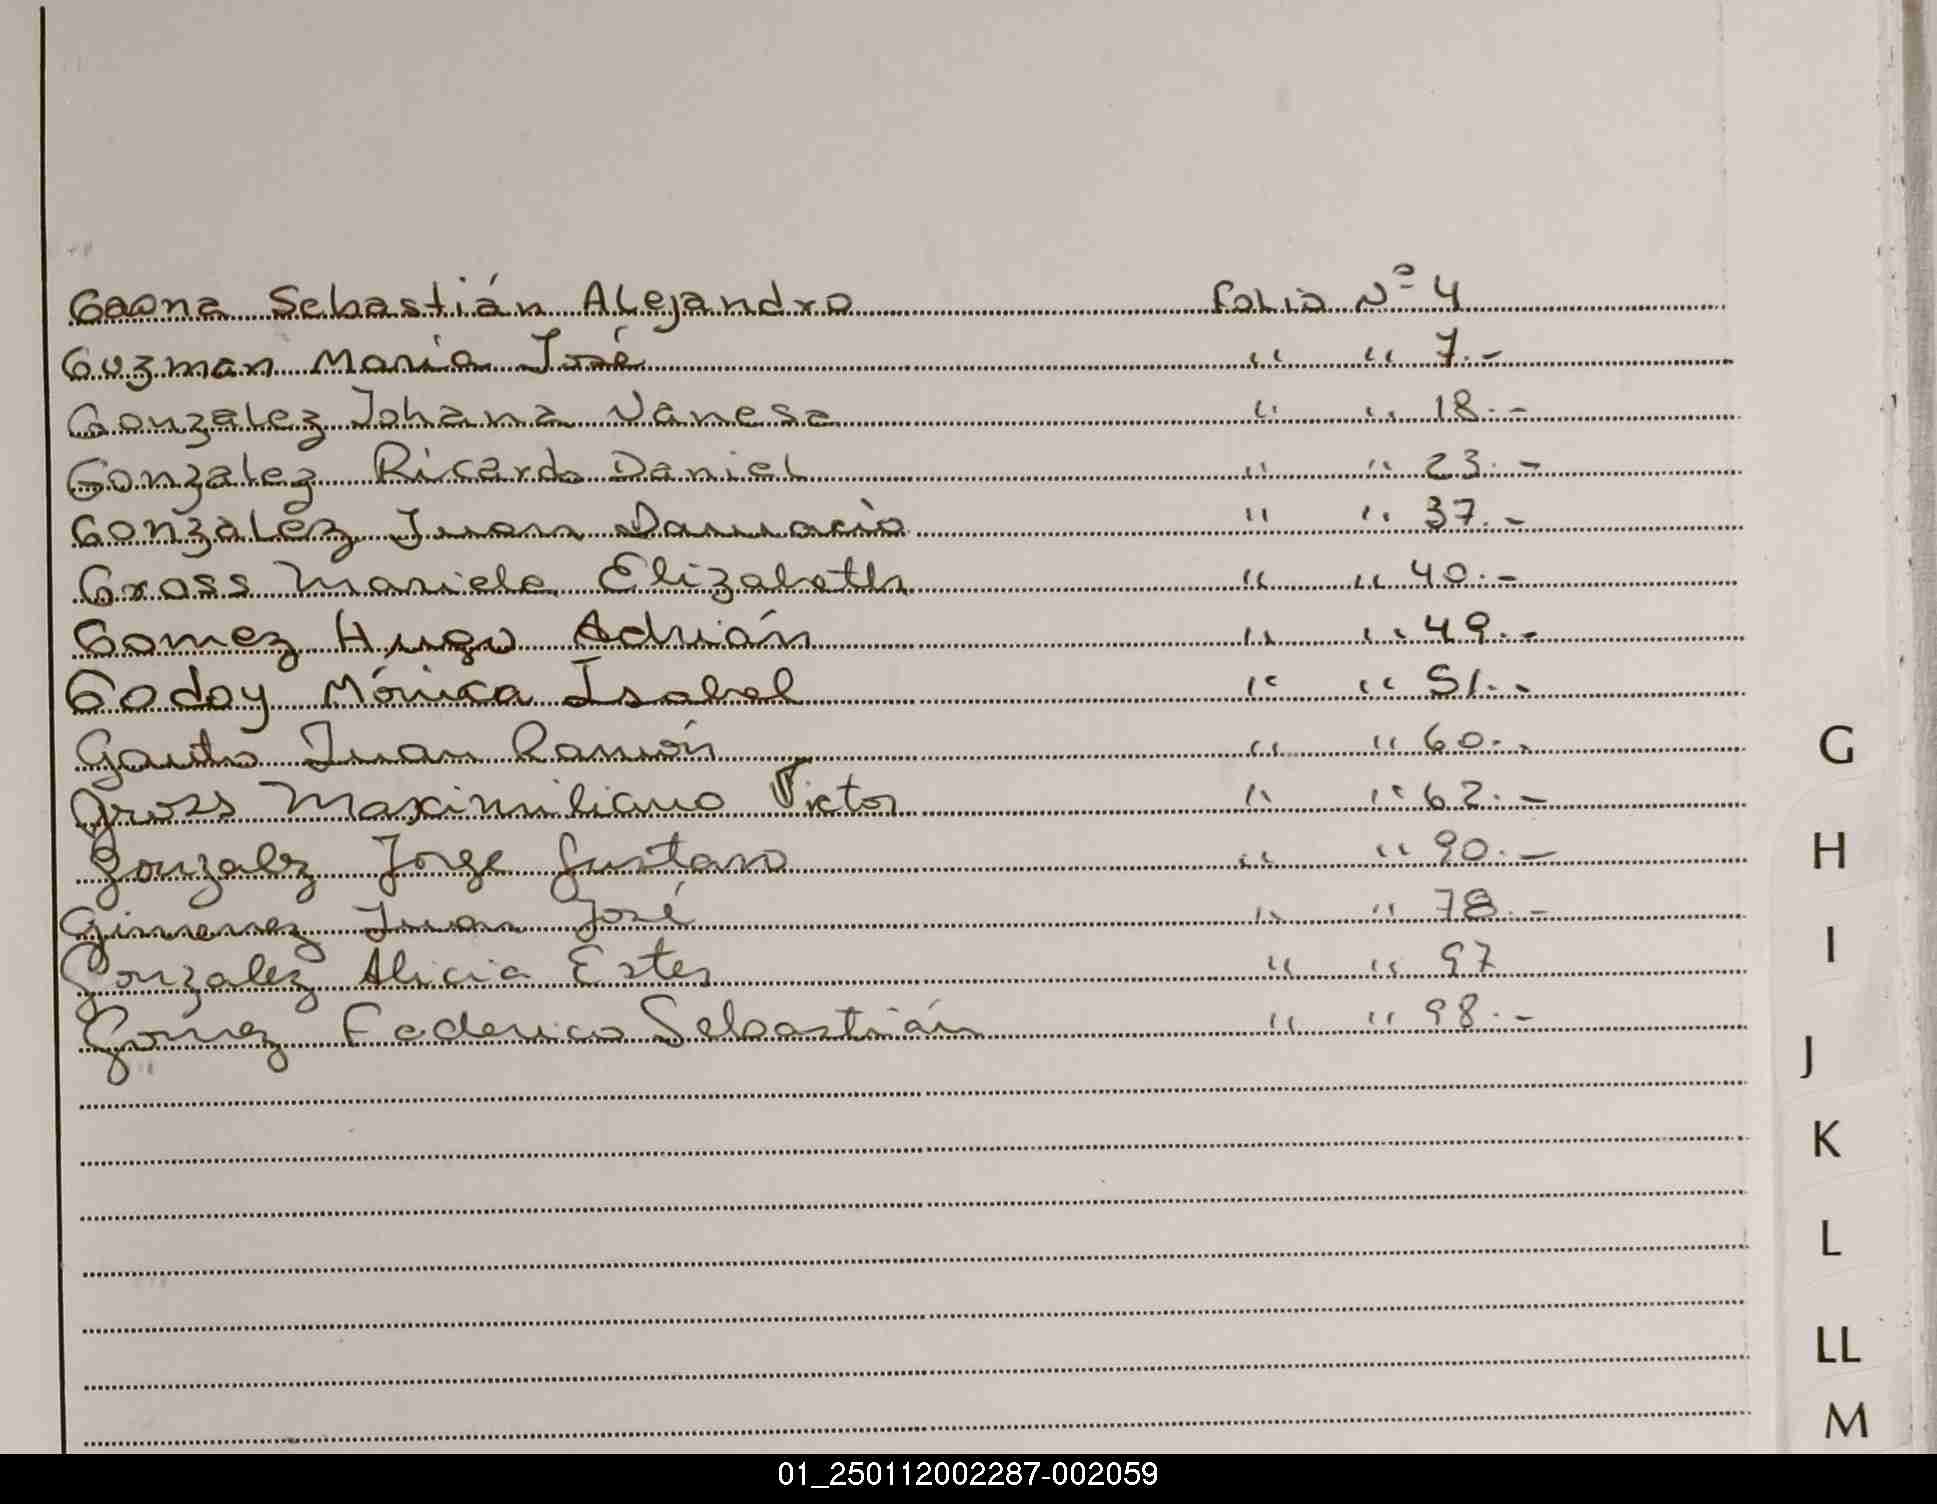 Gaona Sebastián Alejandro folio Nº 4
Guzman Maria José " " 7.-
Gonzalez Johana Vanesa " " 18.-
Gonzalez Ricardo Daniel " " 23.-
Gonzalez Juan Damacio " " 37.-
Gross Mariela Elizabeth " " 40.-
Gomez Hugo Adrián " " 49.-
Godoy Mónica Isabel " " 51.-
Gauto Juan Ramón " " 60.-
Gross Maximiliano Victor " " 62.-
Gonzalez Jorge Gustavo " " 90.-
Gimenez Juan José " " 78.-
Gonzalez Alicia Ester " " 97
Gómez Federico Sebastián " " 98.-
G
H
I
J
K
L
LL
M
01_250112002287-002059